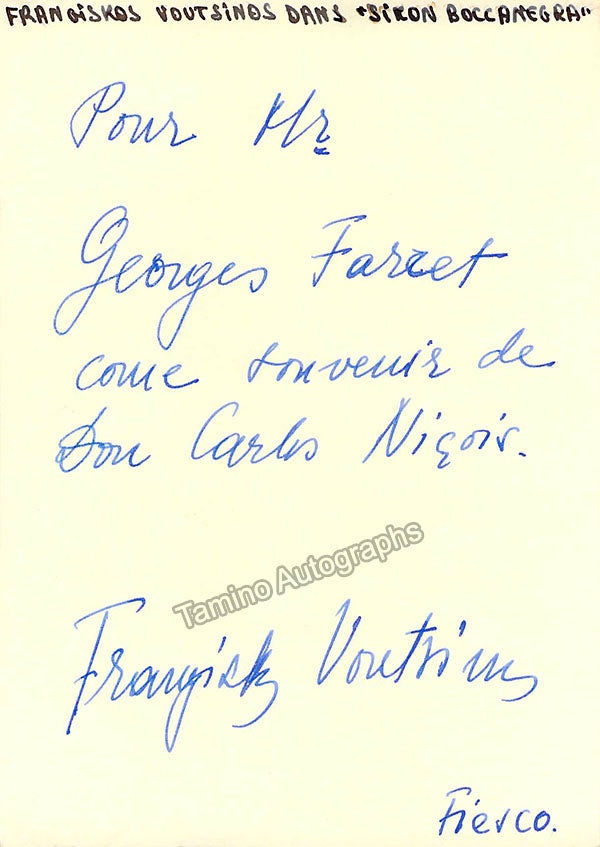 FRANGISKOS VOUTSINOS DANS "SIMON BOCCANEGRA"
Pour Mr
Georges Farret
come souvenir de
Don Carlos Niçois.
Tamino Autographs
Frangisk Voutsinos
Fiesco.